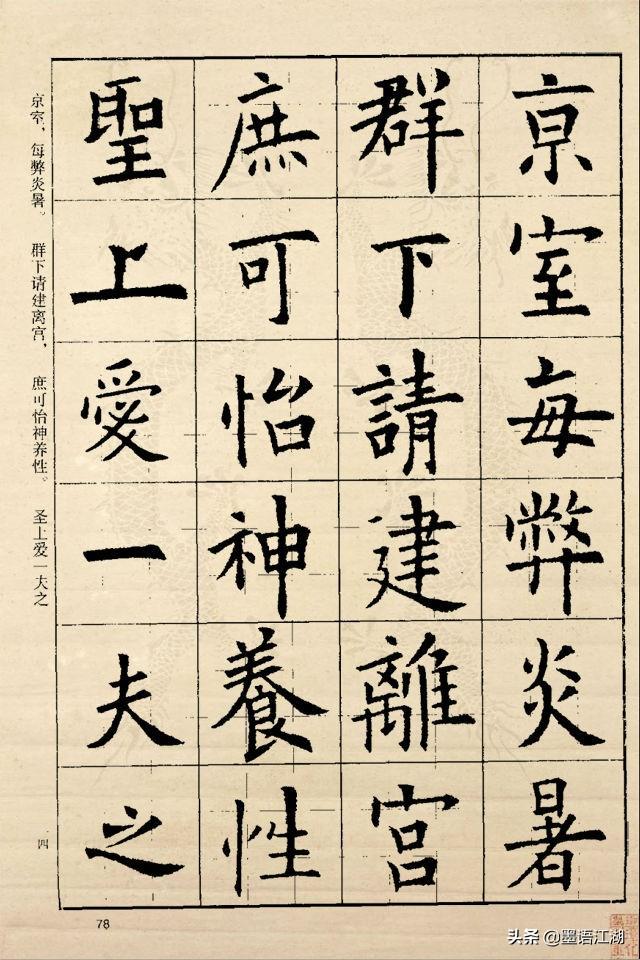 京室每弊炎暑
群下請建離宮
庶可怡神養性
聖上愛一夫之
京室，每弊炎暑。 群下请建离宫， 庶可怡神养性。 圣上爱一夫之
四
78
头条 @墨语江湖